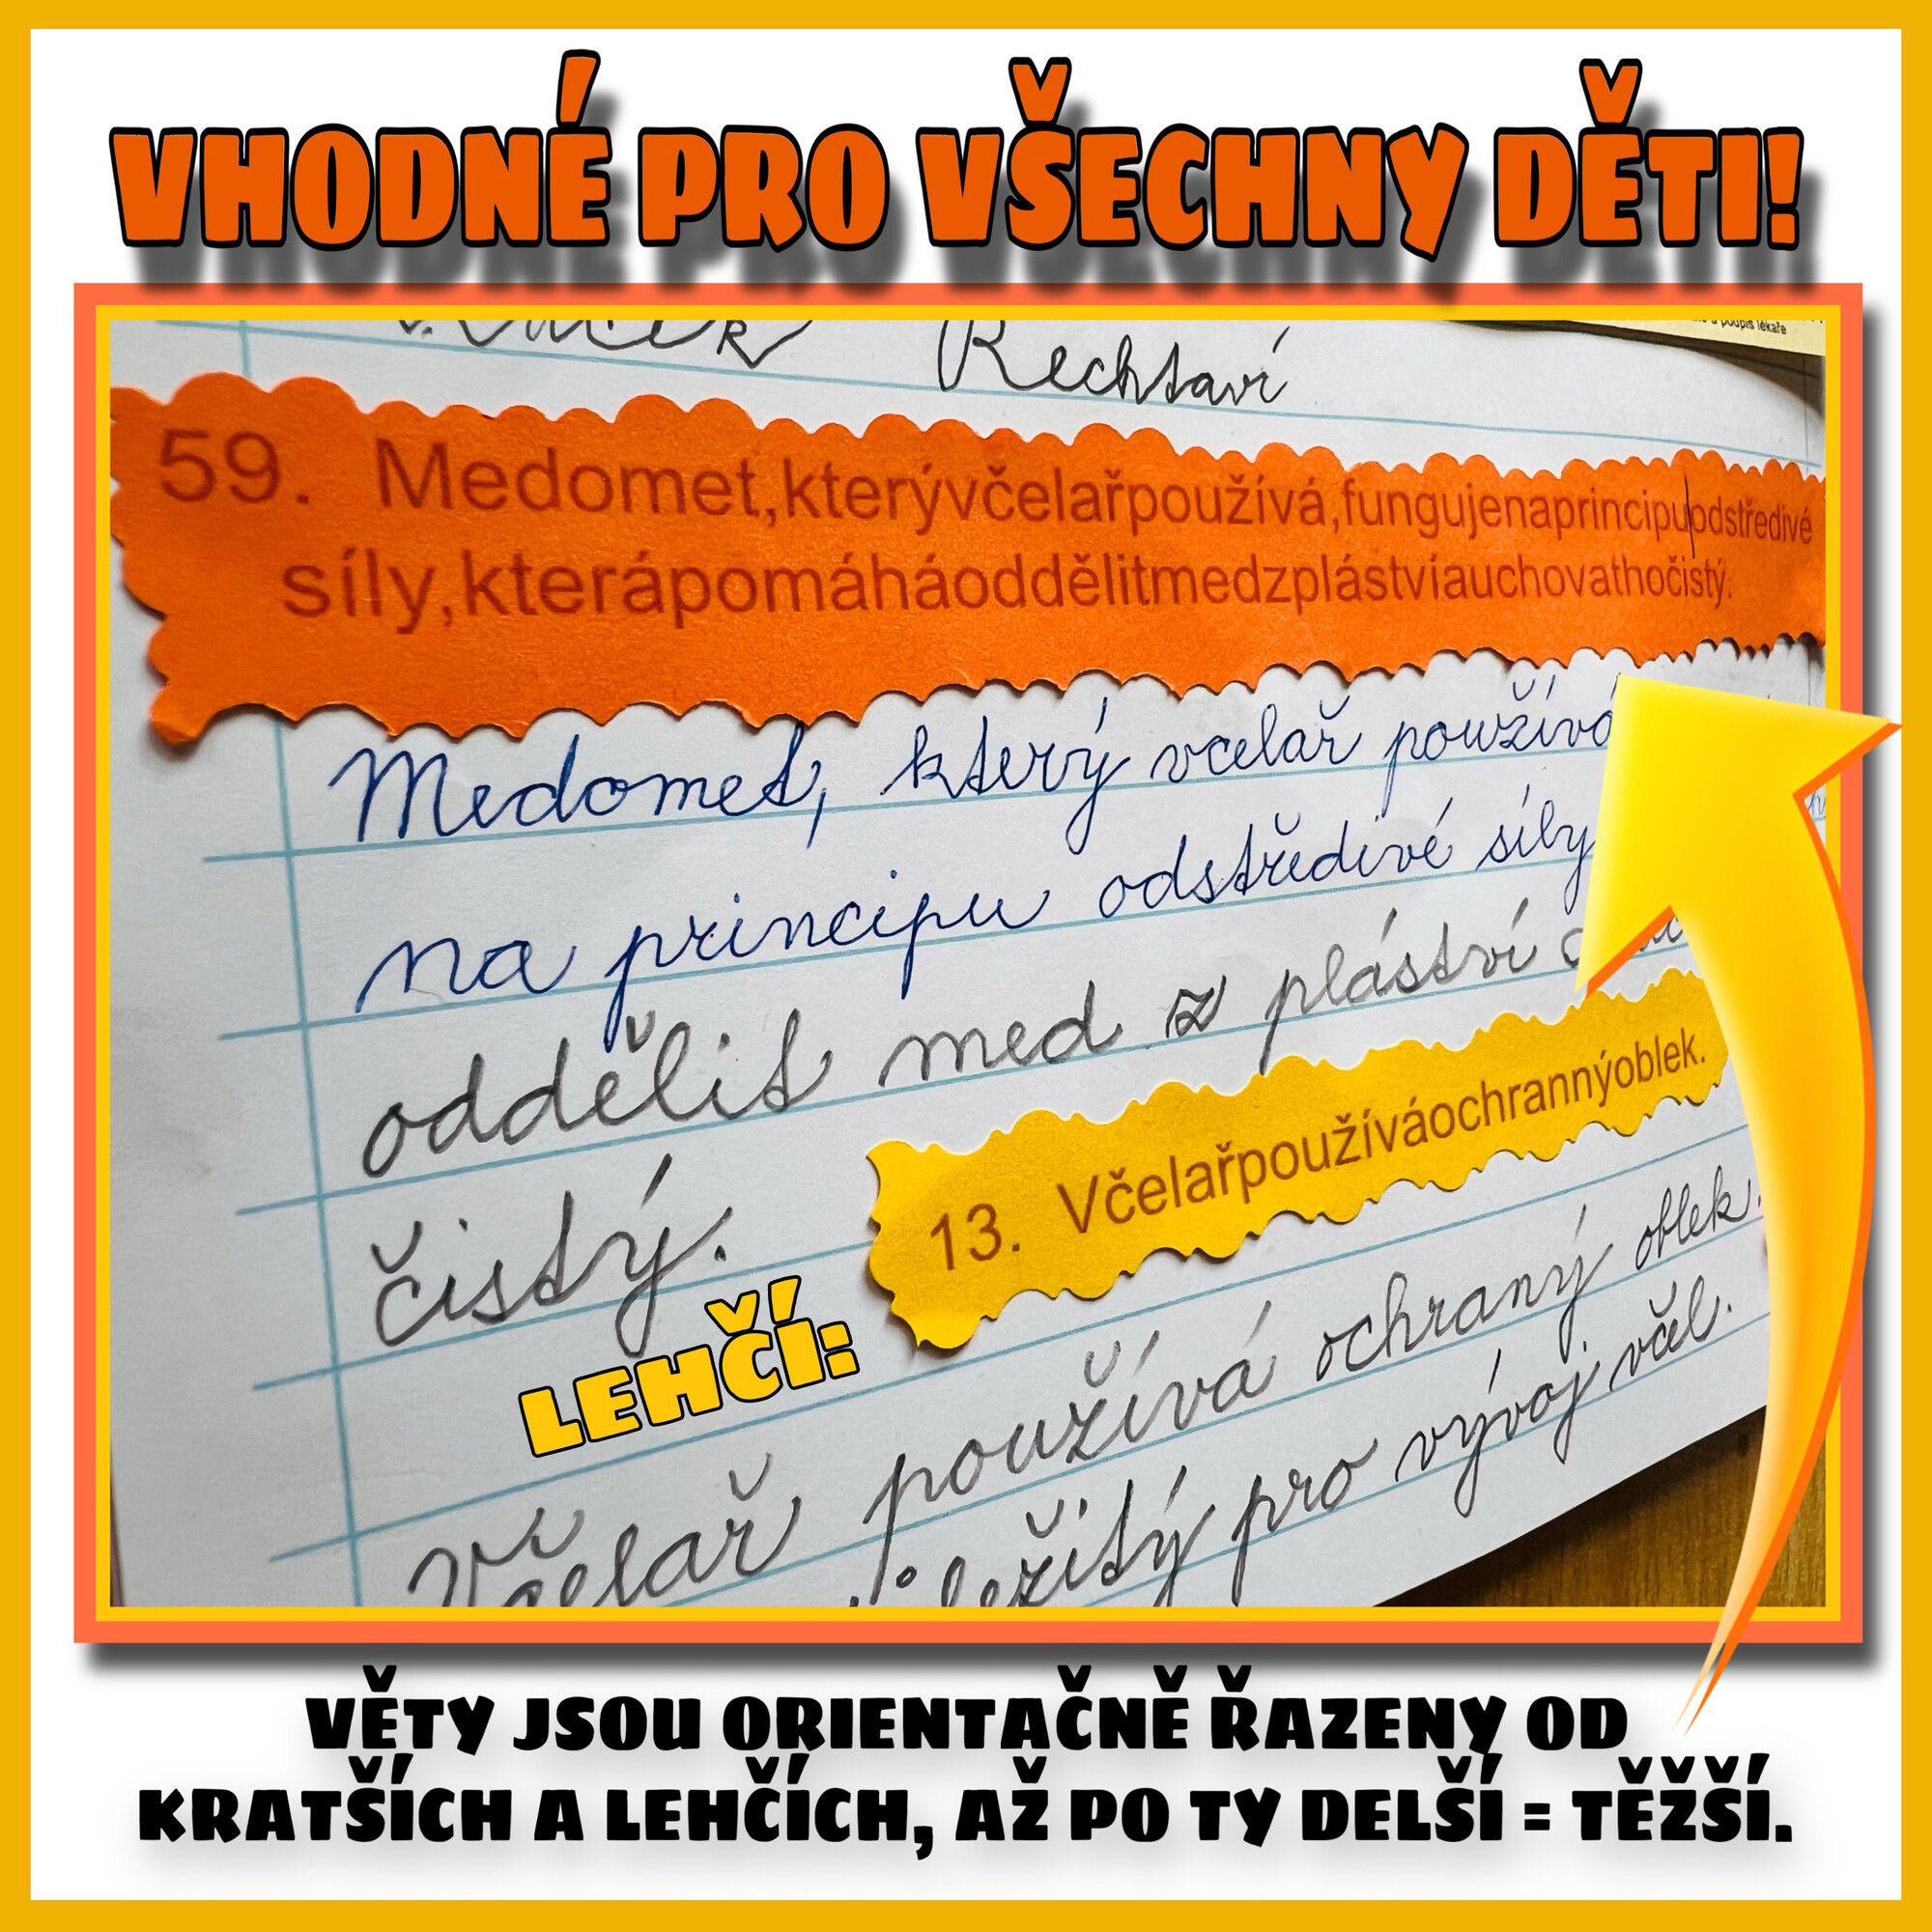 VHODNÉ PRO VŠECHNY DĚTI!
podpis lékaře
Rechtaví
59. Medomet,kterývčelařpoužívá,fungujenaprincipuodstředivé
síly,kterápomáháoddělitmedzplástvíauchovathočistý.
Medomet, který vcelař používá
na principu odstředivé síly
oddělit med z pláství
čistý.
13. Včelařpoužíváochrannýoblek.
LEHČÍ:
Včelař používá ochraný oblek.
pro vývoj včel.
VĚTY JSOU ORIENTAČNĚ ŘAZENY OD
KRATŠÍCH A LEHČÍCH, AŽ PO TY DELŠÍ = TĚŽŠÍ.